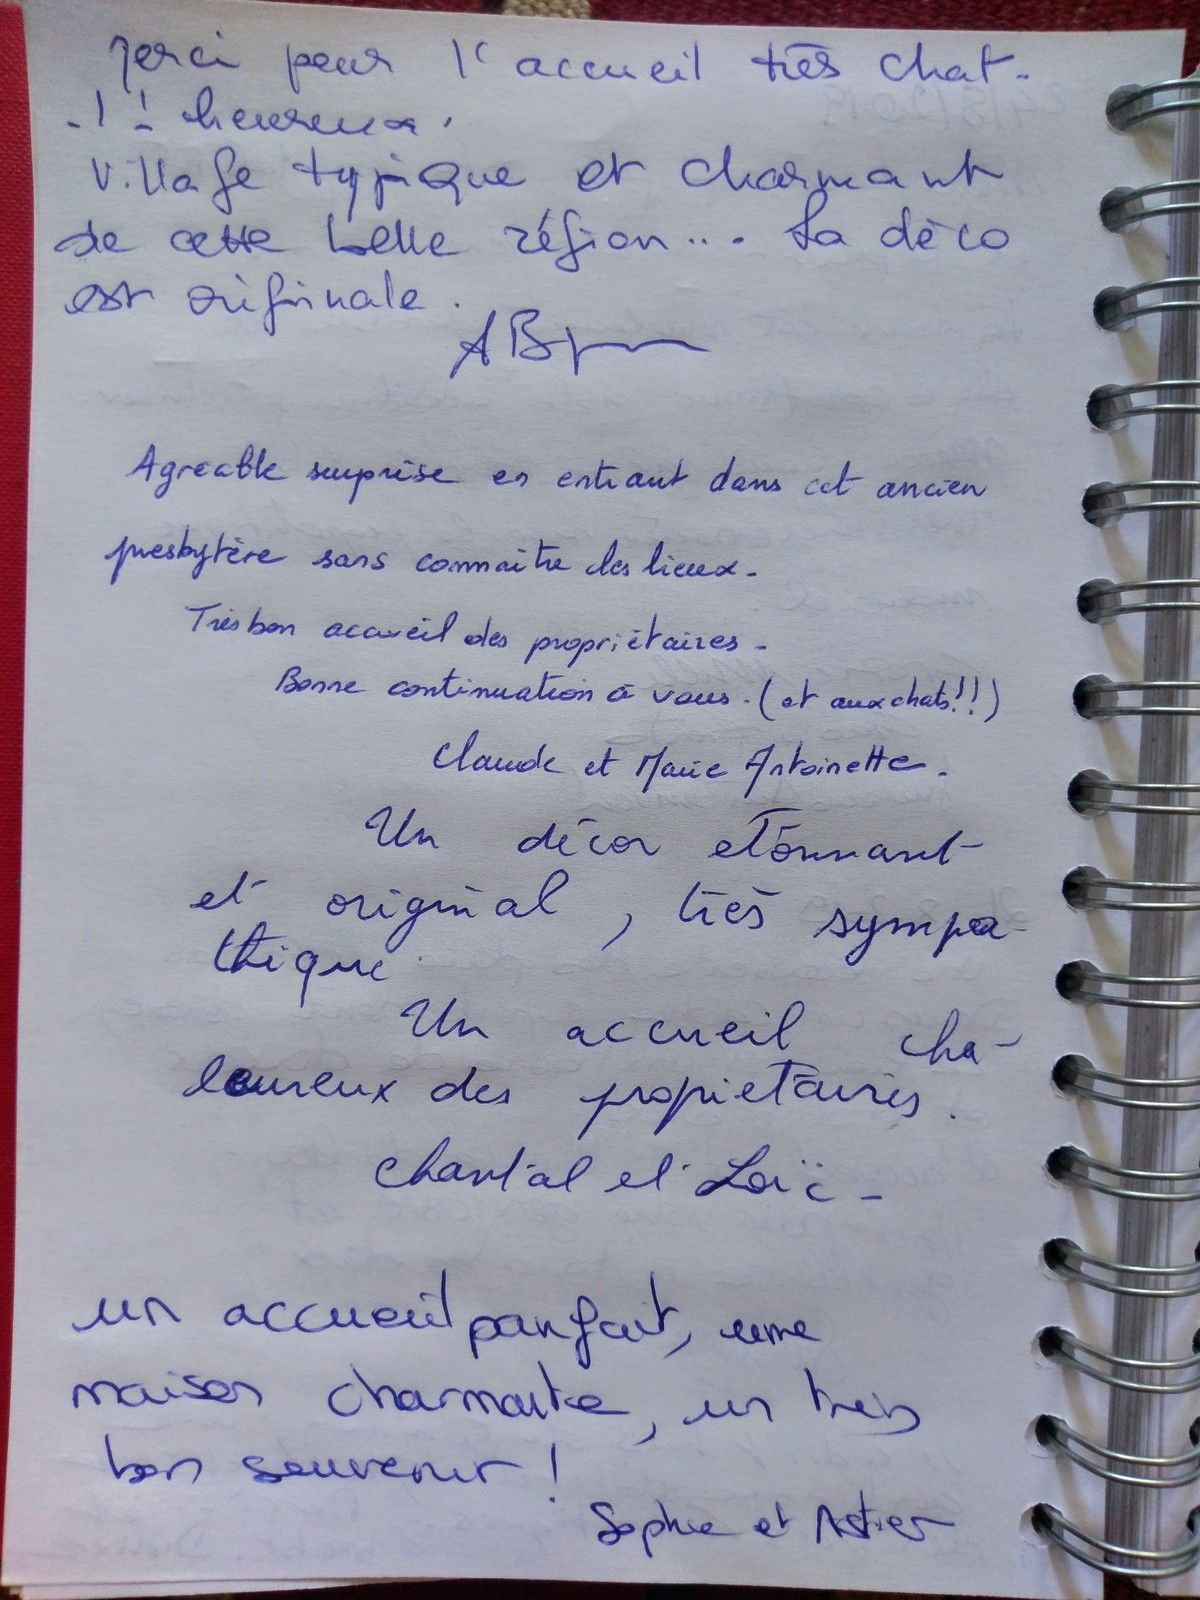 Merci pour l'accueil très chat-
-!! heureux.
Village typique et charmant
de cette belle région... La déco
est originale.
Agreable surprise en entrant dans cet ancien
presbytère sans connaître les lieux.
Très bon accueil des propriétaires.
Bonne continuation à vous. (et aux chats!!!)
Claude et Marie Antoinette.
Un décor etonnant
et original, très sympa-
thique
Un accueil cha-
leureux des propietaires.
Chantal et Loïc -
un accueil parfait, une
maison charmante, un très
bon souvenir !
Sophie et Astier